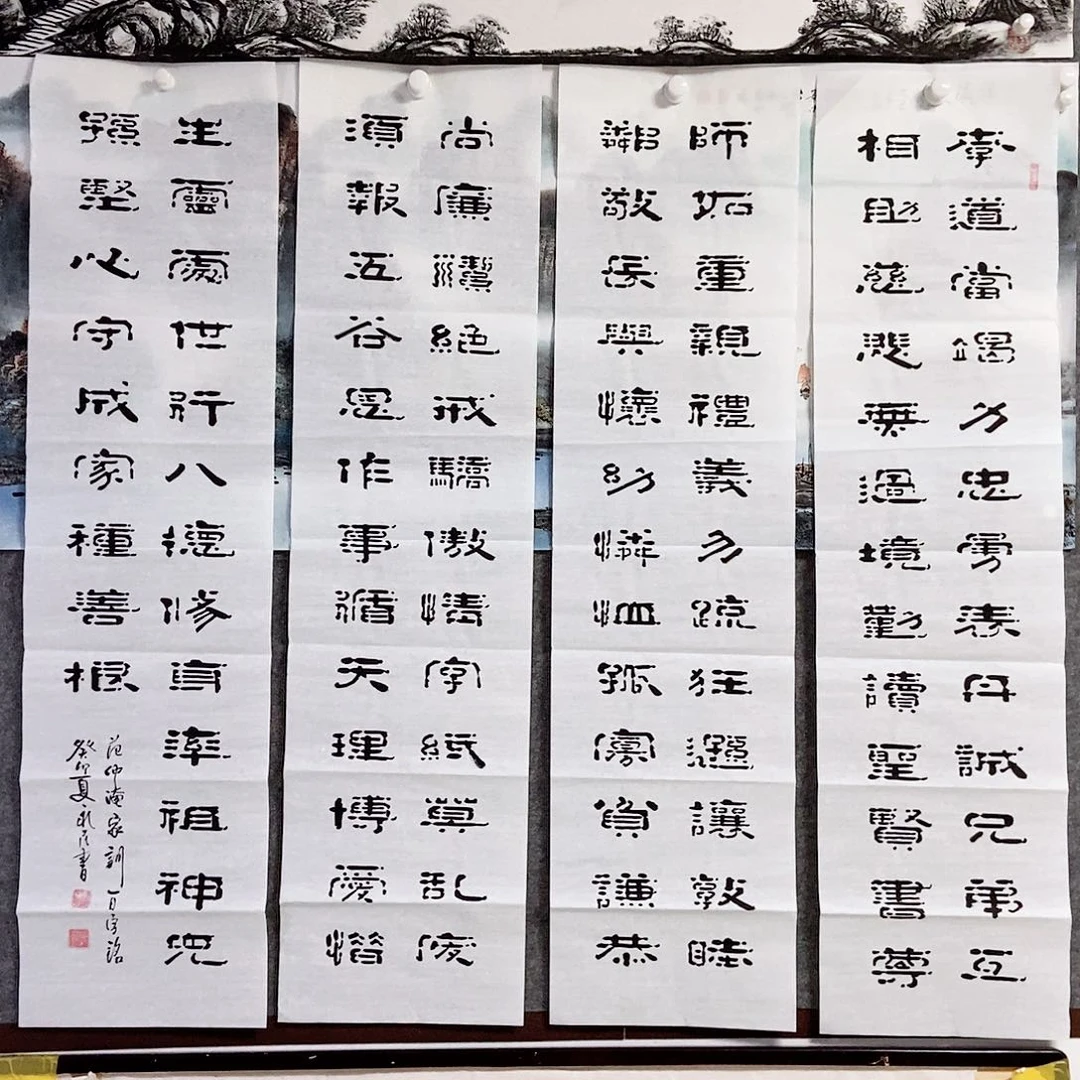 孝道當竭力忠勇表丹誠兄弟互
相助慈悲無過境勤讀聖賢書尊
師如重親禮義勿疏狂遜讓敦睦
鄰敬長與懷幼憐恤孤寡貧謙恭
尚廉潔絕戒驕傲情字紙莫乱廢
須報五谷恩作事循天理博愛惜
生靈處世行八德修身率祖神兒
孫堅心守成家種善根
范仲淹家訓百字銘
癸卯夏書